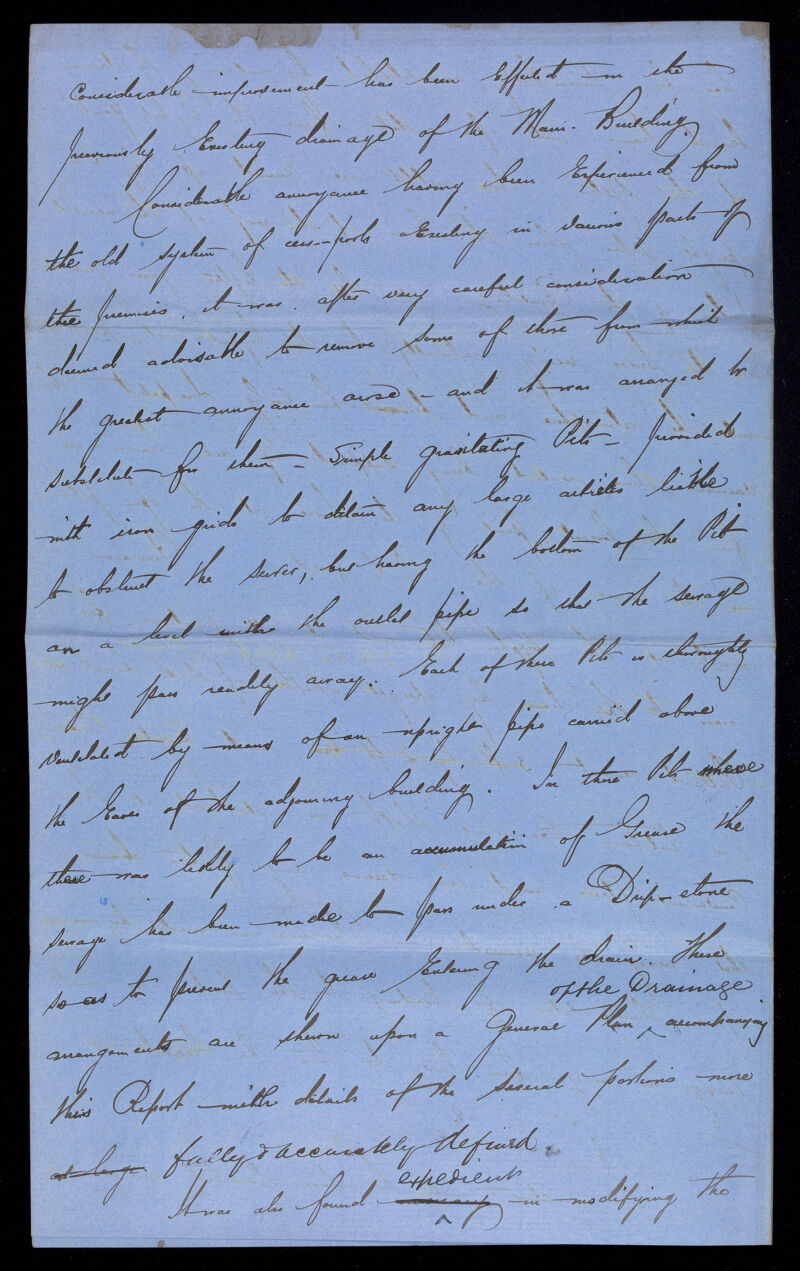 Considerable improvement has been Effected in the
previously Existing drainage of the Main Building
Considerable annoyance having been Experienced from
the old system of cess-pools Existing in various parts of
the premises, it was after very careful consideration
deemed advisable to remove some of those from which
the greatest annoyance arose - and it was arranged to
substitute for them - Simple gravitating Pits - provided
with iron grids to detain any large articles liable
to obstruct the sewer, but having the bottom of the Pit
on a level with the outlet pipe so that the sewage
might pass readily away. Each of these Pits is thoroughly
ventilated by means of an upright pipe carried above
the Eaves of the adjoining building. In those Pits where
there was likely to be an accumulation of Grease the
sewage has been made to pass under a Drip-stone
so as to prevent the grease Entering the drain. These
of the Drainage
arrangements are shewn upon a General Plan ^ accompanying
this Report with details of the several portions more
at large fully & accurately defined.
expedient
It was also found necessary ^ in modifying the